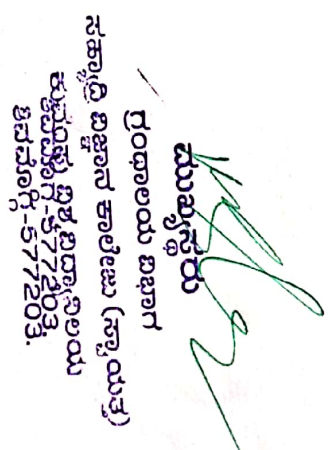 ಮುಖ್ಯಸ್ಥರು
ಗ್ರಂಥಾಲಯ ವಿಭಾಗ
ಸಹ್ಯಾದ್ರಿ ವಿಜ್ಞಾನ ಕಾಲೇಜು (ಸ್ವಾಯತ್ತ)
ಕುವೆಂಪು ವಿಶ್ವವಿದ್ಯಾಲಯ
ಶಿವಮೊಗ್ಗ-577203.